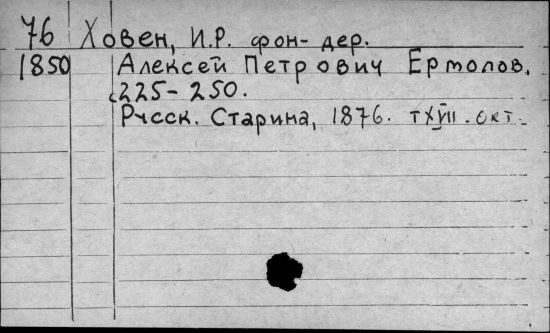 76 Ховен, И.Р. фон-дер.
1850 Алексей Петрович Ермолов.
с225-250.
Русск. Старина, 1876. тXVII. окт.